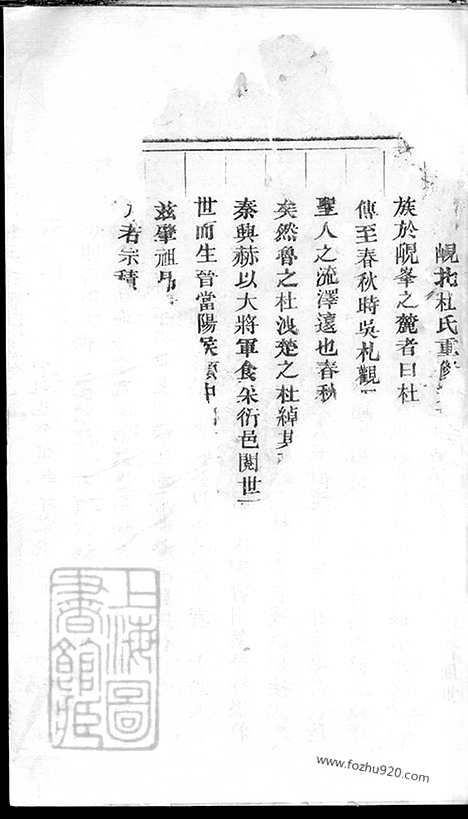 峴北杜氏重修
族於峴峯之麓者曰杜
傳至春秋時吳札觀
聖人之流澤遠也春秋
矣然魯之杜洩楚之杜綽
秦興赫以大將軍食采衍邑閱世
世而生晉當陽矦
玆肇祖
若宗積
上海圖
書館藏
www.fozhu920.com